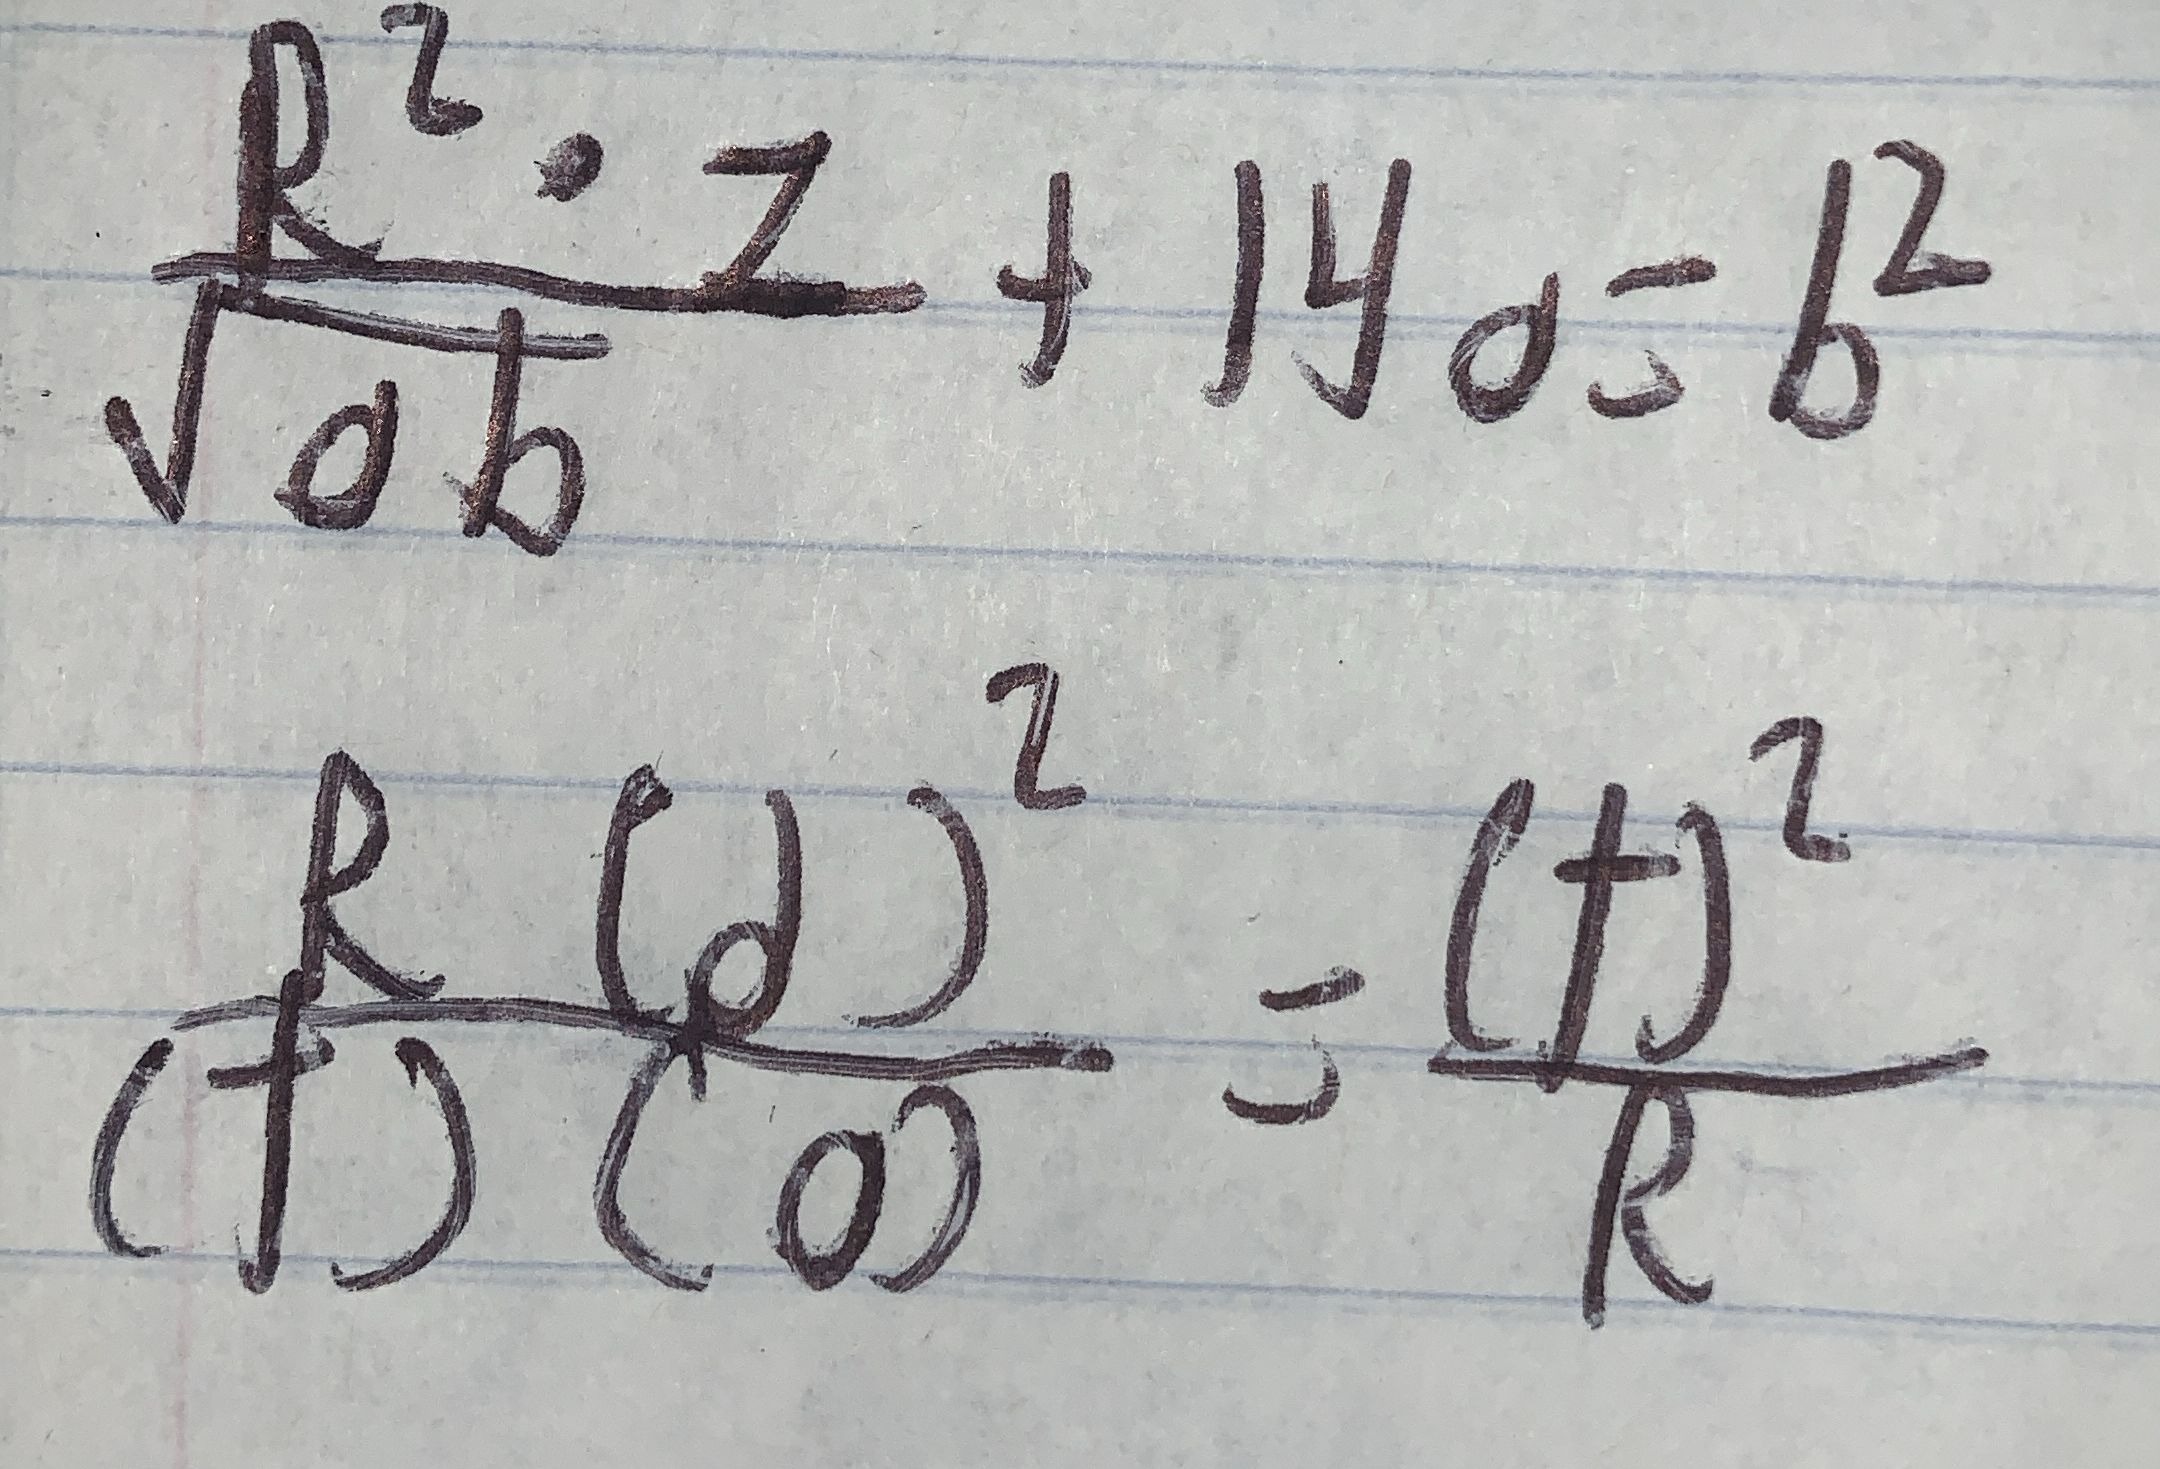 R² · Z
√ab + 14a = b²
R (d)² = (t)²
(t) (o) R